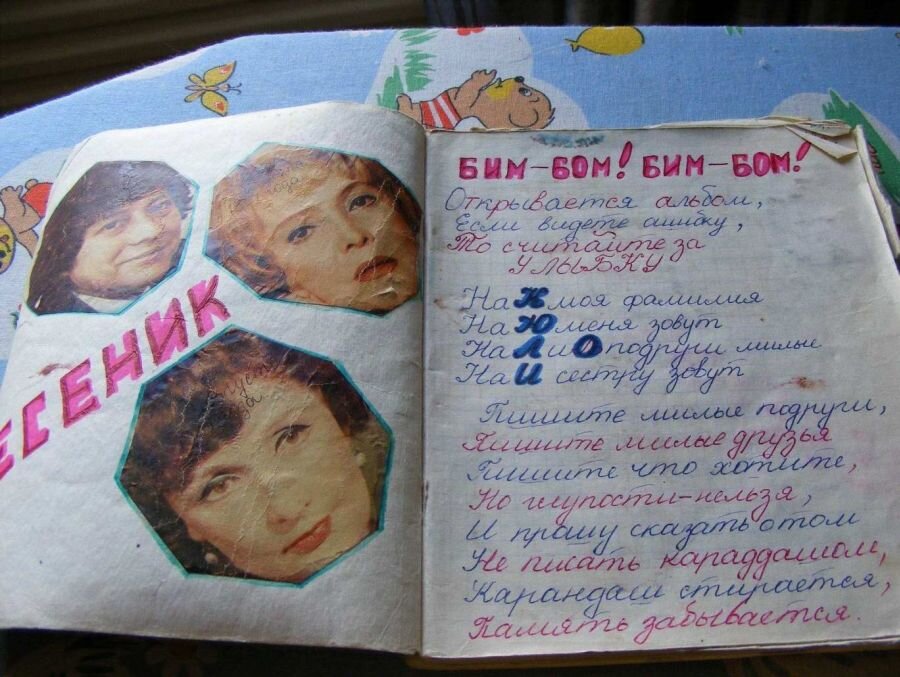 ЕСЕНИК
БИМ-БОМ! БИМ-БОМ!
Открывается альбом,
Если видете ашибку,
То считайте за
УЛЫБКУ
На К моя фамилия
На Ю меня зовут
На Л и О подруги милые
На И сестру зовут
Пишите милые подруги,
Пишите милые друзья
Пишите что хотите,
Но глупости-нельзя,
И прашу сказать о том
Не писать караддашом,
Карандаш стирается,
Память забывается.